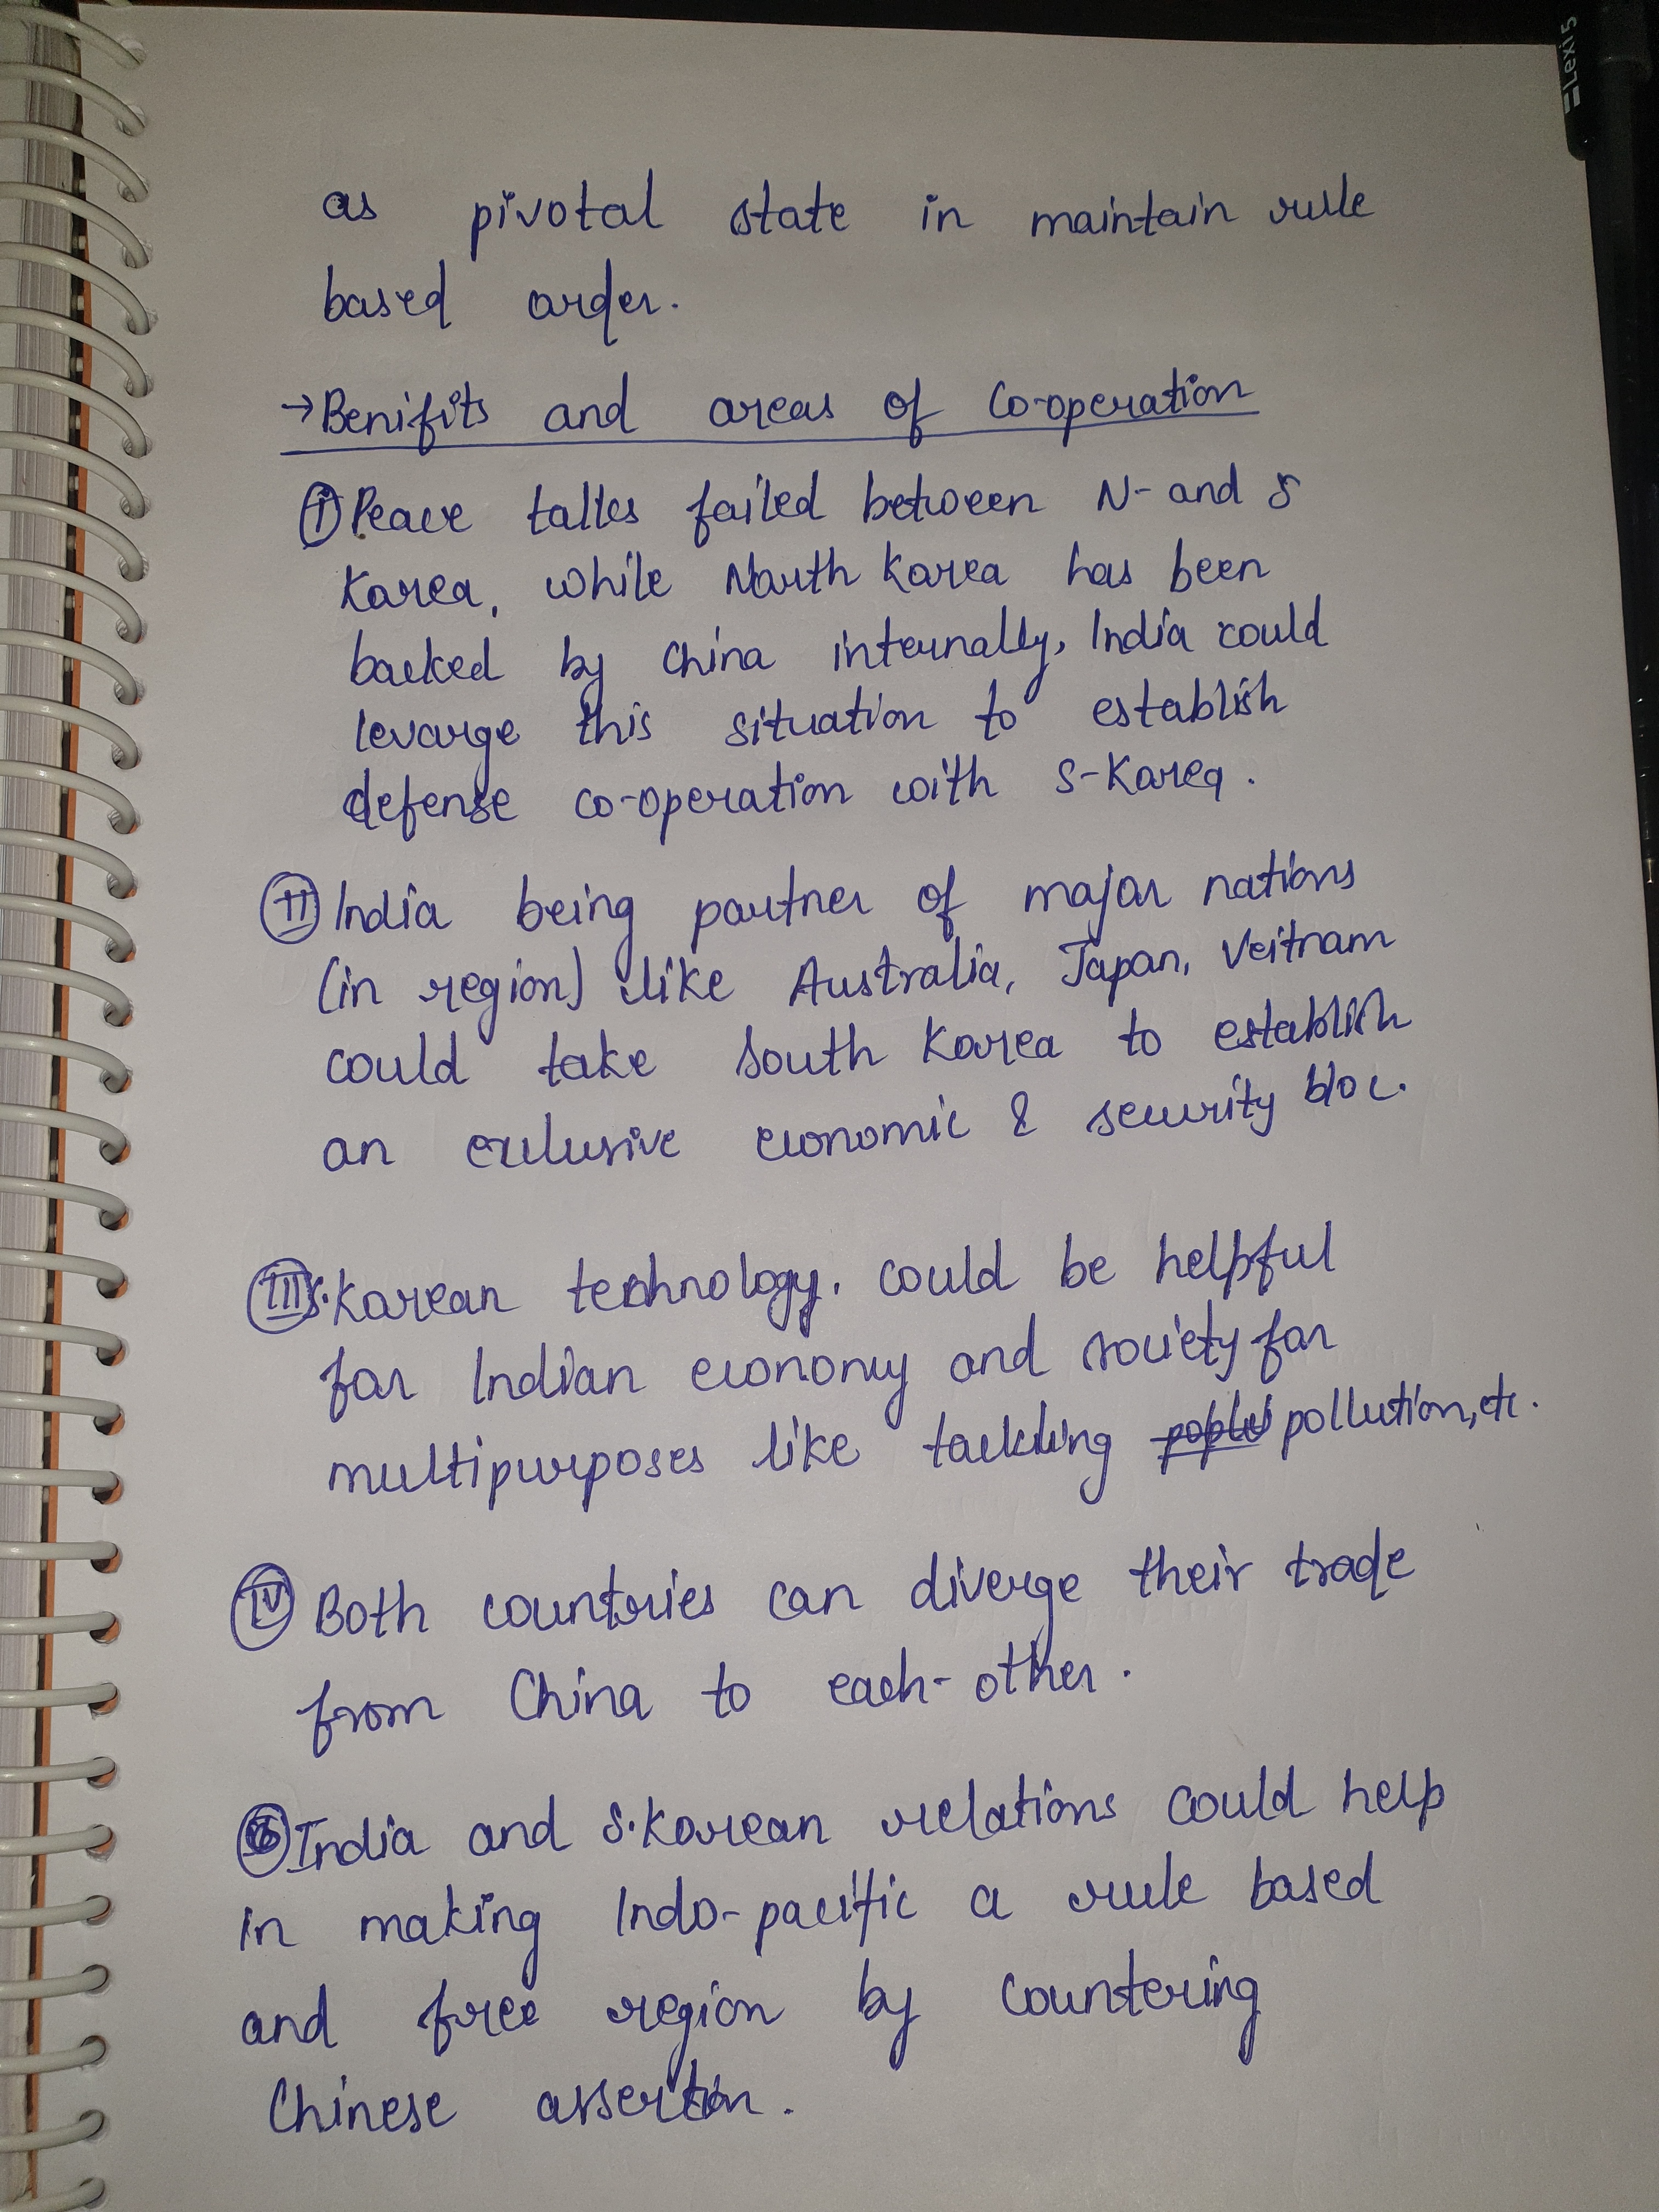 Lexi 5
as pivotal state in maintain rule
based order.
→ Benifits and areas of Co-operation
(i) Peace talks failed between N- and S
Korea, while North Korea has been
backed by China internally, India could
levarge this situation to establish
defense co-operation with S-Korea.
(II) India being partner of major nations
(in region) like Australia, Japan, Veitnam
could take South Korea to establish
an exclusive economic & security bloc.
(III) S. Korean technology. could be helpful
for Indian economy and society for
multipurposes like tackling pollution, etc.
(IV) Both countries can diverge their trade
from China to each-other.
India and S. Korean relations could help
in making Indo-pacific a rule based
and free region by countering
Chinese assertion.